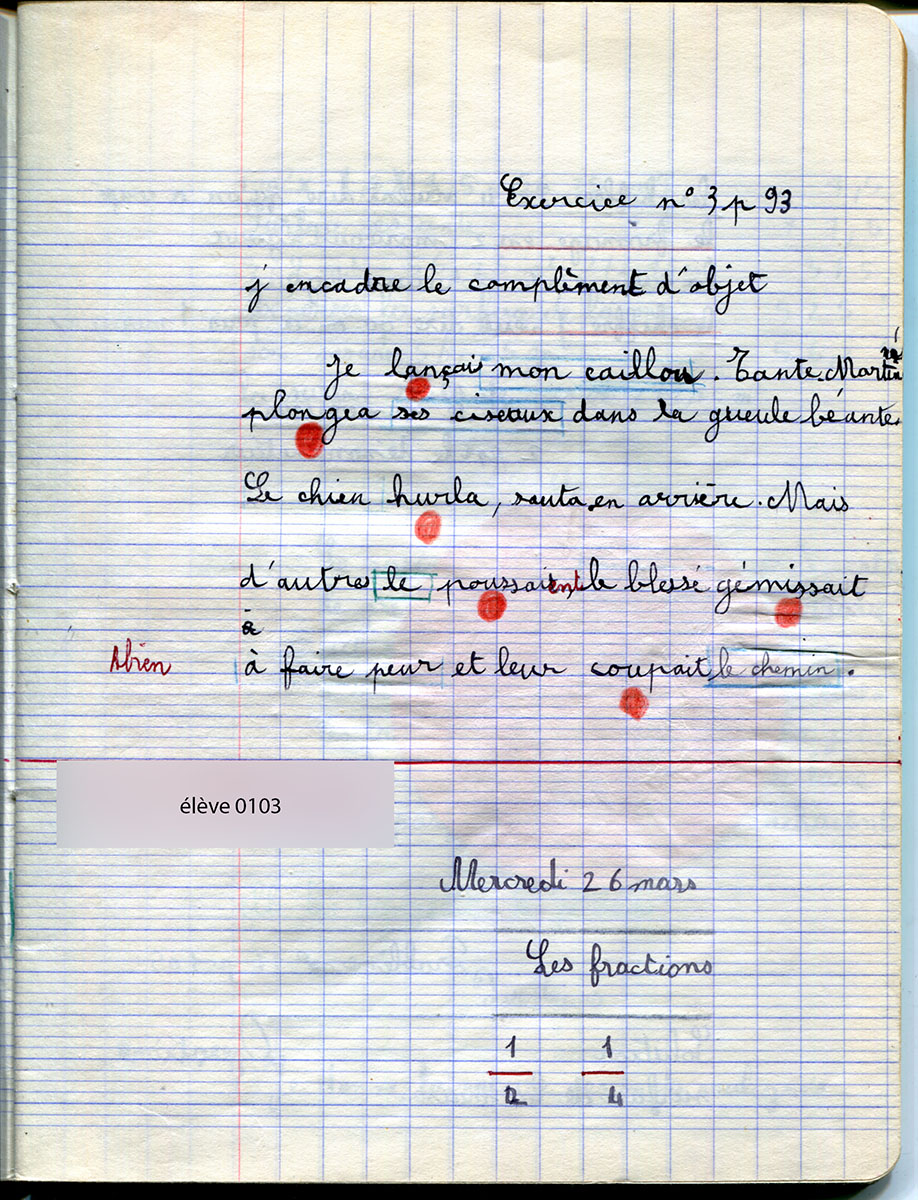 Exercice n° 3 p 93
j'encadre le complèment d'objet
Je lançais mon caillou. Tante. Martin
plongea ses ciseaux dans la gueule béante.
Le chien hurla, sauta en arrière. Mais
d'autres le poussaient, le blessé gémissait
à
à faire peur et leur coupait le chemin.
Abien
élève 0103
Mercredi 26 mars
Les fractions
1 1
2 4